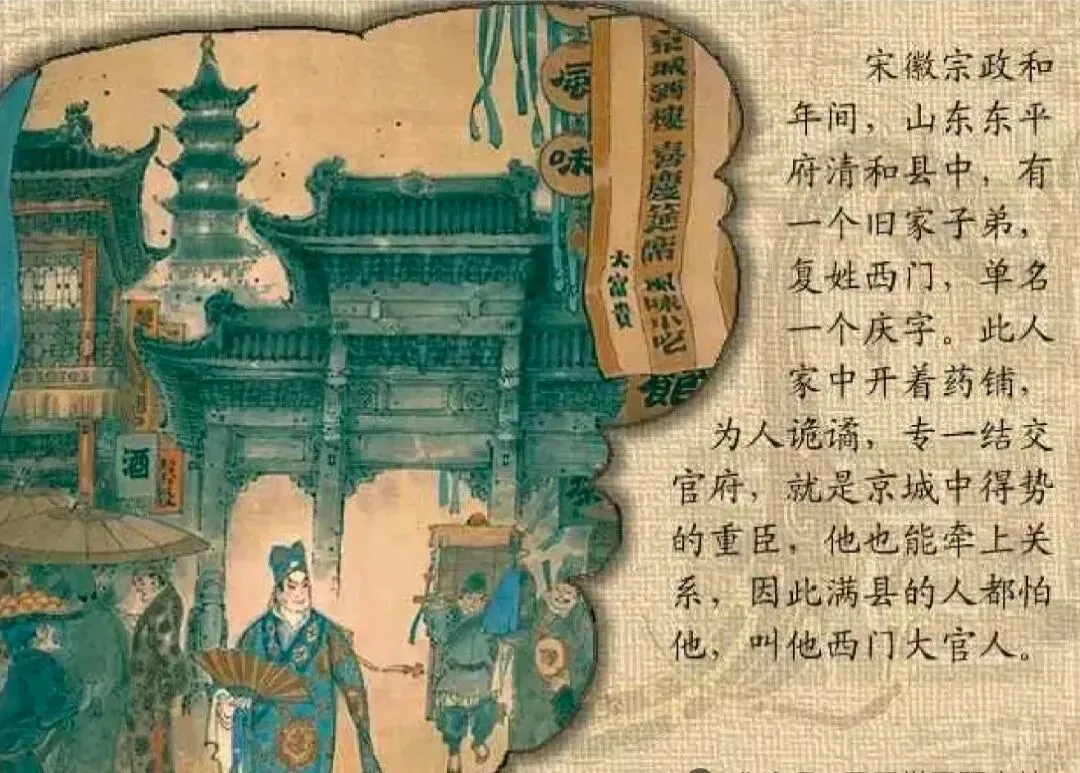 宋徽宗政和
年间，山东东平
府清和县中，有
一个旧家子弟，
复姓西门，单名
一个庆字。此人
家中开着药铺，
为人诡谲，专一结交
官府，就是京城中得势
的重臣，他也能牵上关
系，因此满县的人都怕
他，叫他西门大官人。
京城酒楼 喜慶筵席 風味小吃
大富貴
味
館
酒